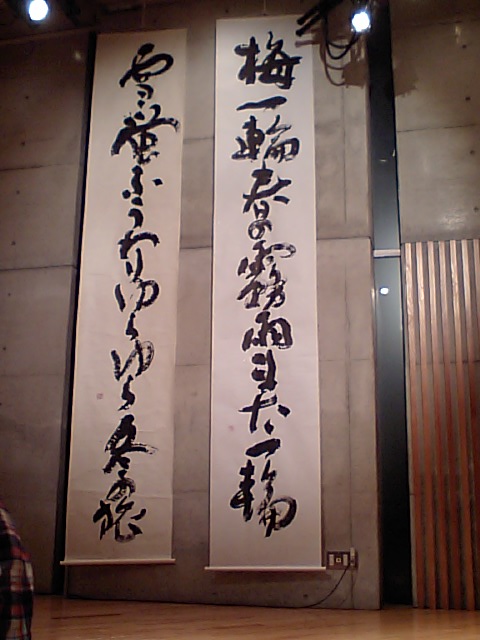 梅一輪春の霧雨また一輪
雪蛍ふうわりゆらゆら冬の旅